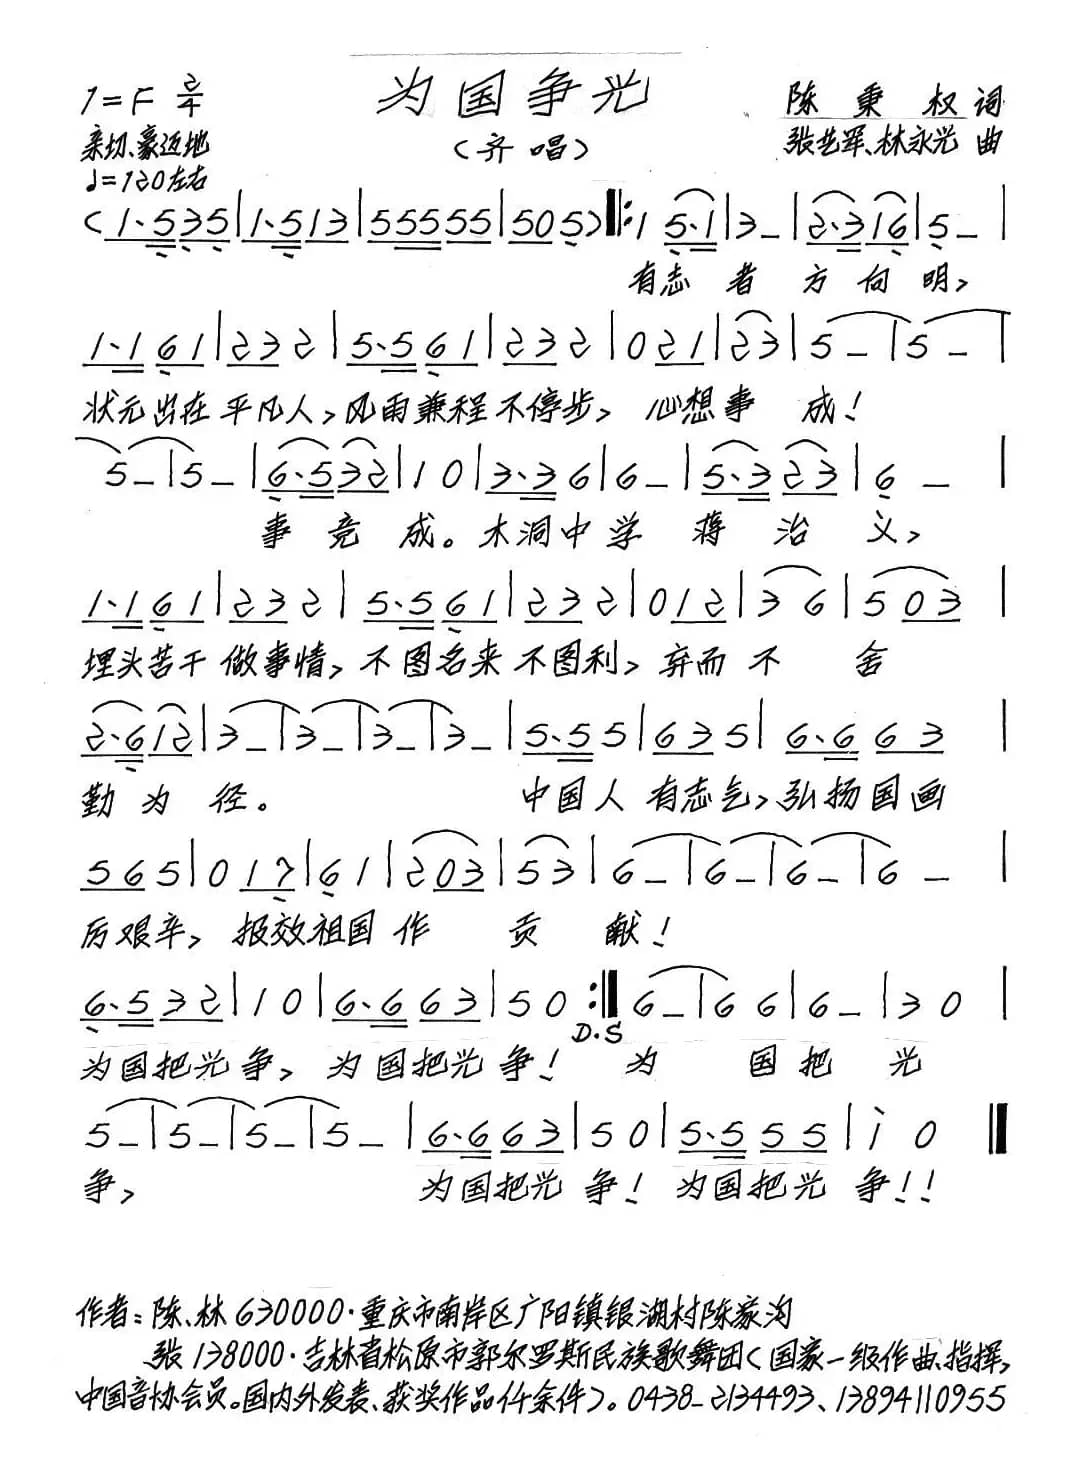 1=F 2/4 为国争光 陈秉权词
亲切、豪迈地 (齐唱) 张艺军、林永光 曲
♩=120左右
(1·535|1·513|55555|505)‖:1 5·1|3–|2·316|5–|
有志者方向明,
1·161|232|5·561|232|021|23|5–|5–|
状元出在平凡人,风雨兼程不停步,心想事成!
5–|5–|6·532|10|3·36|6–|5·323|6–|
事竞成。木洞中学蒋治义,
1·161|232|5·561|232|012|36|503|
埋头苦干做事情,不图名来不图利,弃而不舍
2·612|3–|3–|3–|3–|5·55|635|6·663|
勤为径。中国人有志气,弘扬国画
565|017|61|203|53|6–|6–|6–|6–|
厉艰辛,报效祖国作贡献!
6·532|10|6·663|50:‖6–|66|6–|30|
D.S
为国把光争,为国把光争!为国把光
5–|5–|5–|5–|6·663|50|5·555|i0‖
争,为国把光争!为国把光争!!
作者:陈、林630000·重庆市南岸区广阳镇银湖村陈家沟
张138000·吉林省松原市郭尔罗斯民族歌舞团(国家一级作曲、指挥,
中国音协会员。国内外发表、获奖作品仟余件)。0438-2134493、13894110955